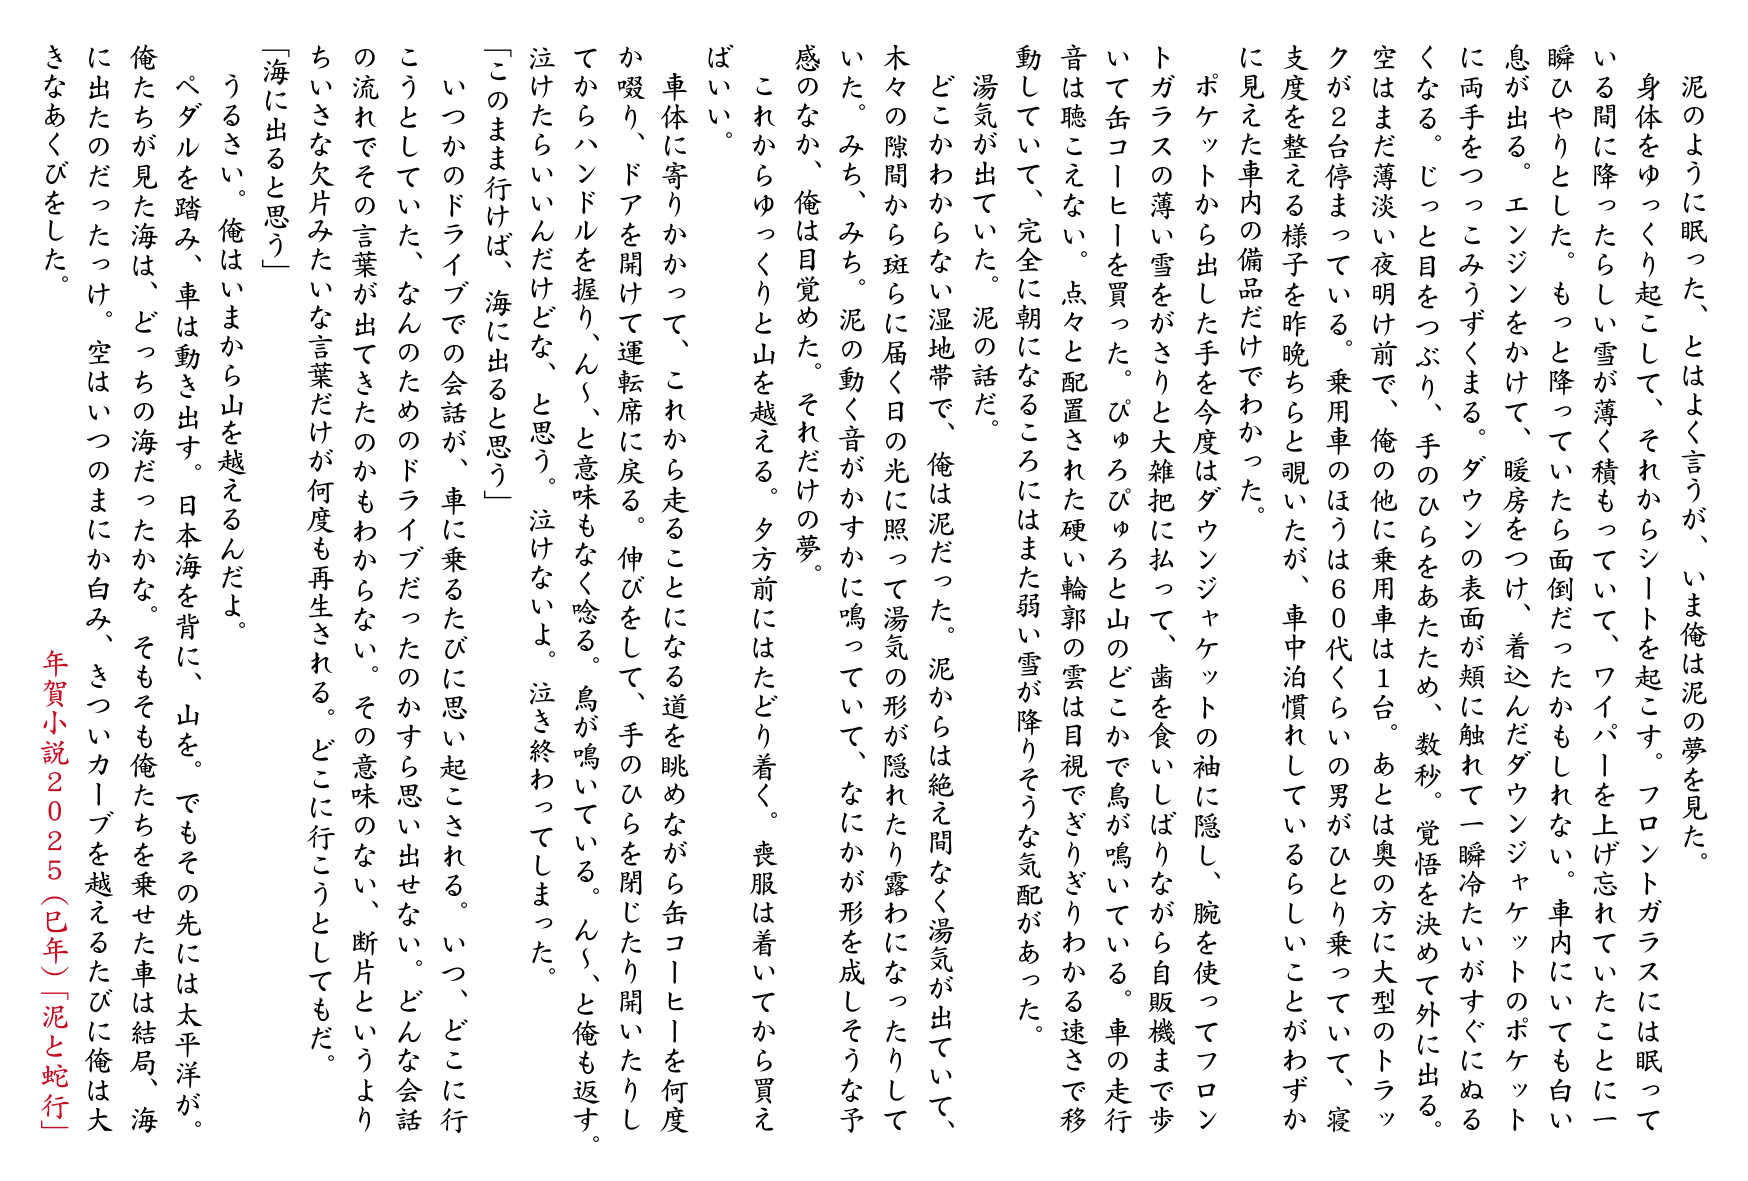 泥のように眠った、とはよく言うが、いま俺は泥の夢を見た。
　身体をゆっくり起こして、それからシートを起こす。フロントガラスには眠って
いる間に降ったらしい雪が薄く積もっていて、ワイパーを上げ忘れていたことに一
瞬ひやりとした。もっと降っていたら面倒だったかもしれない。車内にいても白い
息が出る。エンジンをかけて、暖房をつけ、着込んだダウンジャケットのポケット
に両手をつっこみうずくまる。ダウンの表面が頬に触れて一瞬冷たいがすぐにぬる
くなる。じっと目をつぶり、手のひらをあたため、数秒。覚悟を決めて外に出る。
空はまだ薄淡い夜明け前で、俺の他に乗用車は１台。あとは奥の方に大型のトラッ
クが２台停まっている。乗用車のほうは６０代くらいの男がひとり乗っていて、寝
支度を整える様子を昨晩ちらと覗いたが、車中泊慣れしているらしいことがわずか
に見えた車内の備品だけでわかった。
　ポケットから出した手を今度はダウンジャケットの袖に隠し、腕を使ってフロン
トガラスの薄い雪をがさりと大雑把に払って、歯を食いしばりながら自販機まで歩
いて缶コーヒーを買った。ぴゅろぴゅろと山のどこかで鳥が鳴いている。車の走行
音は聴こえない。点々と配置された硬い輪郭の雲は目視でぎりぎりわかる速さで移
動していて、完全に朝になるころにはまた弱い雪が降りそうな気配があった。
　湯気が出ていた。泥の話だ。
　どこかわからない湿地帯で、俺は泥だった。泥からは絶え間なく湯気が出ていて、
木々の隙間から斑らに届く日の光に照って湯気の形が隠れたり露わになったりして
いた。みち、みち。泥の動く音がかすかに鳴っていて、なにかが形を成しそうな予
感のなか、俺は目覚めた。それだけの夢。
　これからゆっくりと山を越える。夕方前にはたどり着く。喪服は着いてから買え
ばいい。
　車体に寄りかかって、これから走ることになる道を眺めながら缶コーヒーを何度
か啜り、ドアを開けて運転席に戻る。伸びをして、手のひらを閉じたり開いたりし
てからハンドルを握り、ん〜、と意味もなく唸る。鳥が鳴いている。ん〜、と俺も返す。
泣けたらいいんだけどな、と思う。泣けないよ。泣き終わってしまった。
「このまま行けば、海に出ると思う」
　いつかのドライブでの会話が、車に乗るたびに思い起こされる。いつ、どこに行
こうとしていた、なんのためのドライブだったのかすら思い出せない。どんな会話
の流れでその言葉が出てきたのかもわからない。その意味のない、断片というより
ちいさな欠片みたいな言葉だけが何度も再生される。どこに行こうとしてもだ。
「海に出ると思う」
　うるさい。俺はいまから山を越えるんだよ。
　ペダルを踏み、車は動き出す。日本海を背に、山を。でもその先には太平洋が。
俺たちが見た海は、どっちの海だったかな。そもそも俺たちを乗せた車は結局、海
に出たのだったっけ。空はいつのまにか白み、きついカーブを越えるたびに俺は大
きなあくびをした。
年賀小説２０２５（巳年）「泥と蛇行」